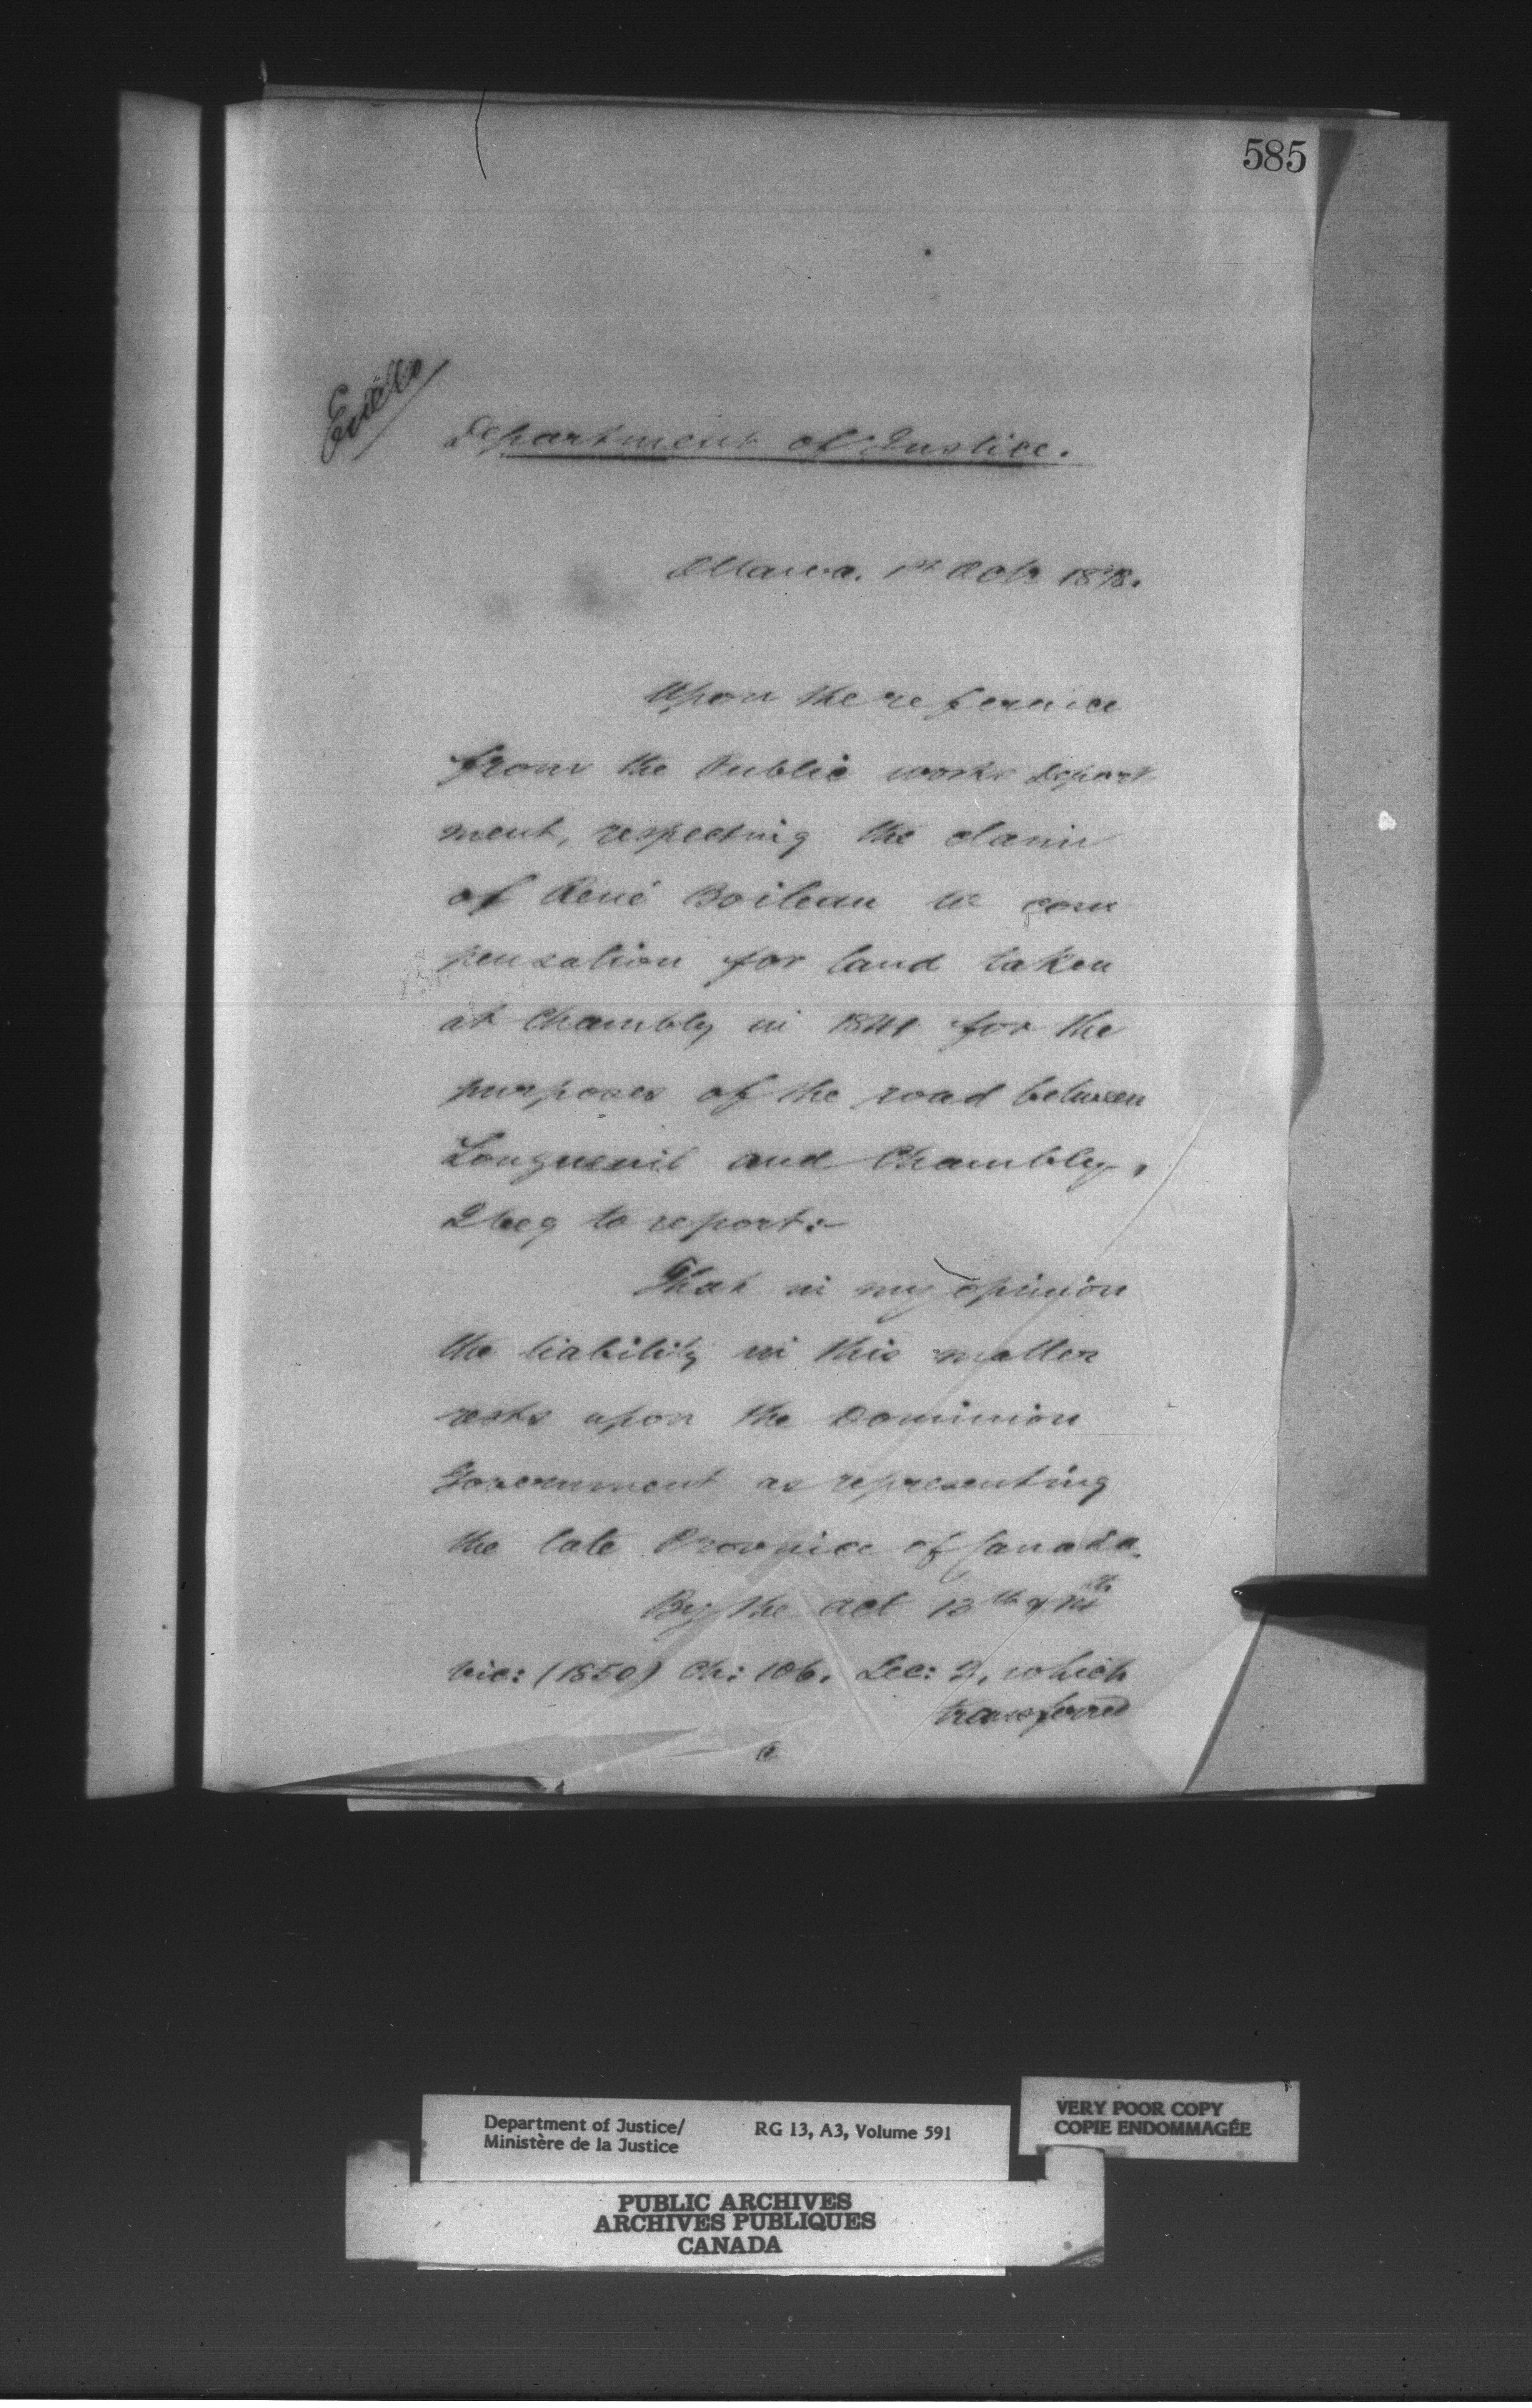 585
Department of Justice.
Ottawa. 1st Octr 1878.
Upon the reference
from the Public works Depart
ment, respecting the claim
of René Boileau to com
pensation for land taken
at Chambly in 1841 for the
purposes of the road between
Longueuil and Chambly,
I beg to report:-
That in my opinion
the liability in this matter
rests upon the Dominion
Government as representing
the late Province of Canada.
By the act 13th & 14th
Vic: (1850) Ch: 106. Sec: 2, which
transferred
Department of Justice/
Ministère de la Justice
RG 13, A3, Volume 591
VERY POOR COPY
COPIE ENDOMMAGÉE
PUBLIC ARCHIVES
ARCHIVES PUBLIQUES
CANADA